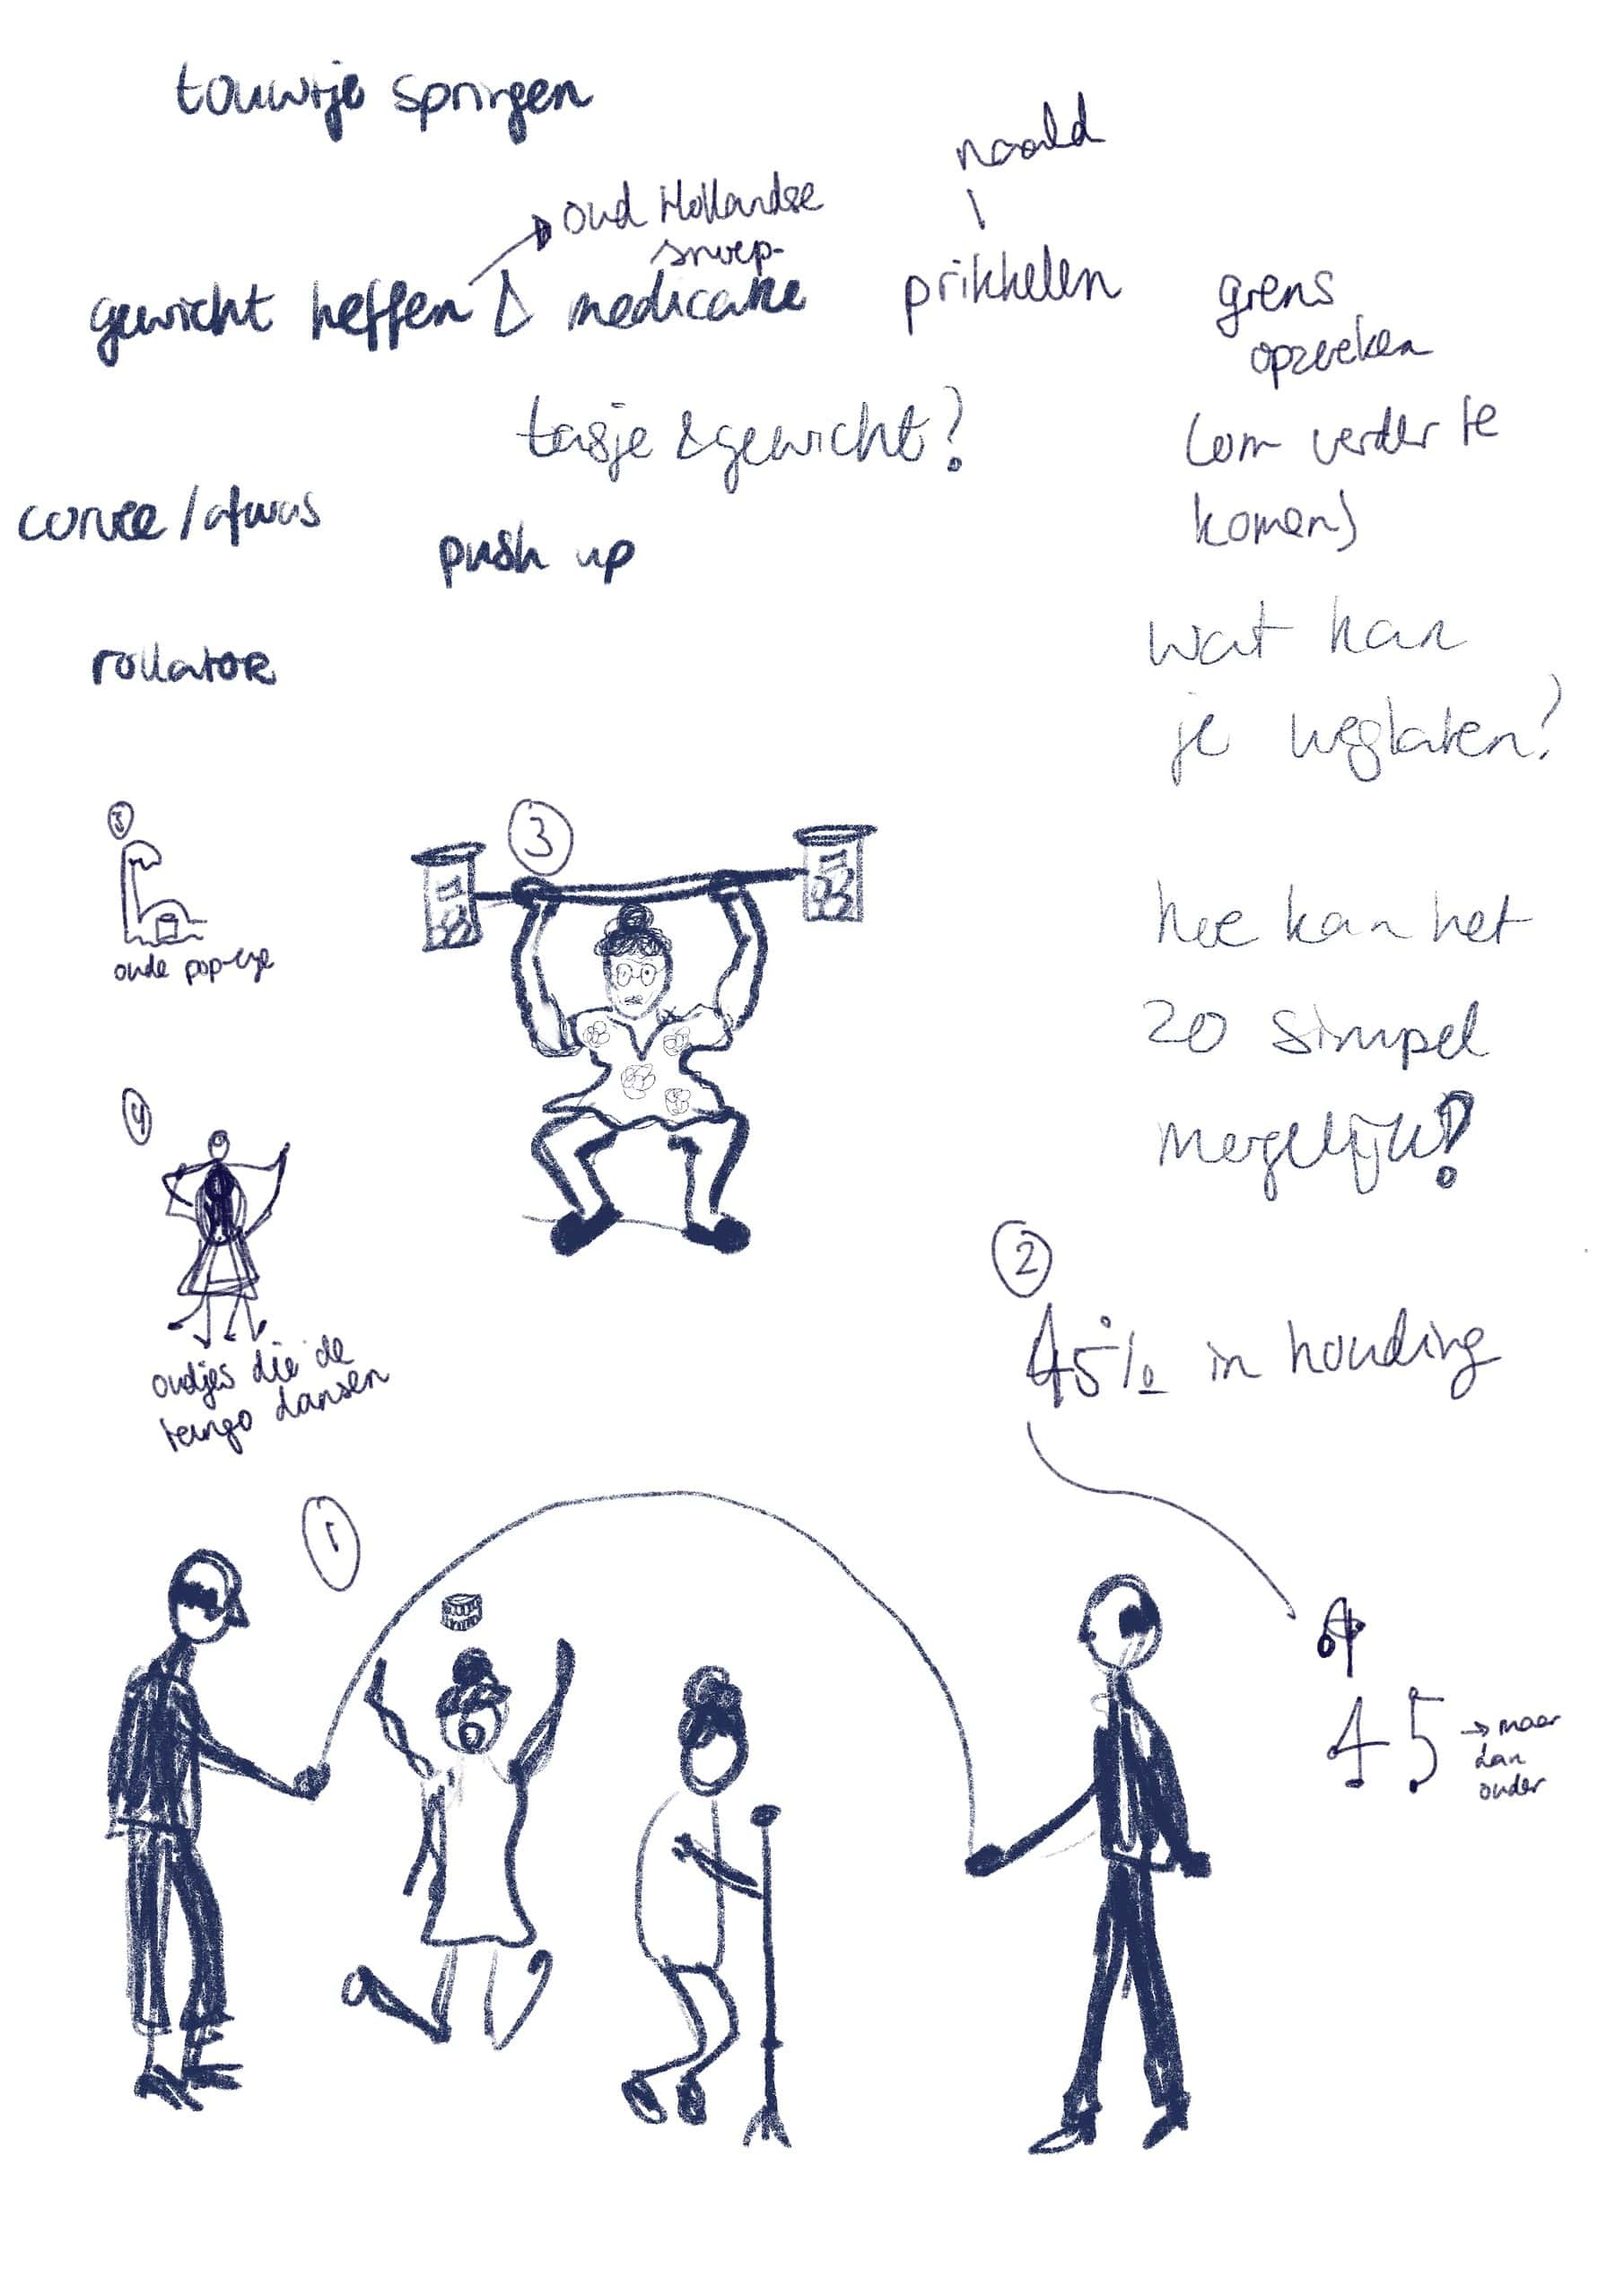 touwtje springen
naald
oud Hollandse
snoep-
gewicht heffen
medicatie
prikkelen
grens
opzoeken
(om verder te
komen)
tasje & gewicht?
corvee / afwas
push up
rollator
wat kan
je weglaten?
3
hoe kan het
zo simpel
mogelijk?
oude pop-eye
4
oudjes die de
tango dansen
2
45% in houding
1
45
→ maar
dan
ouder